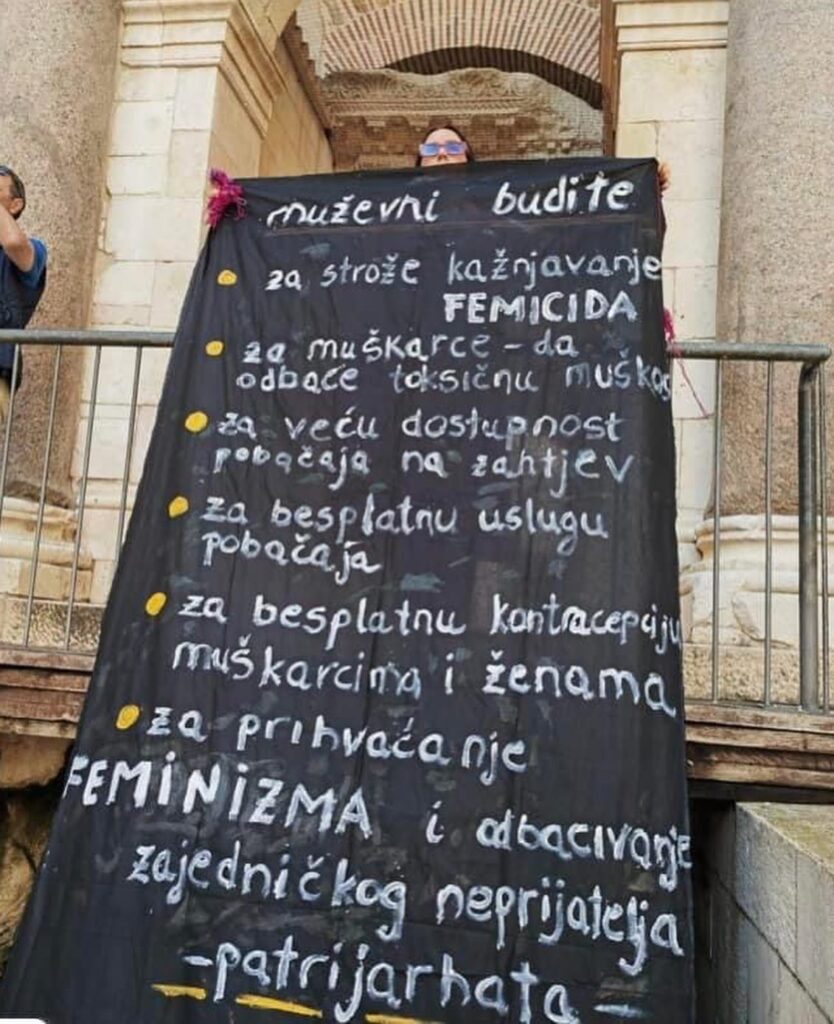 muževni budite
za strože kažnjavanje
FEMICIDA
za muškarce - da
odbace toksičnu muškos
za veću dostupnost
pobačaja na zahtjev
za besplatnu uslugu
pobačaja
za besplatnu kontracepciju
muškarcima i ženama
za prihvaćanje
FEMINIZMA i odbacivanje
zajedničkog neprijatelja
-patrijarhata-